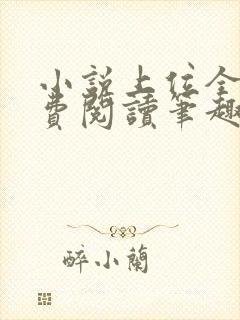 小説上位全
費閱讀筆趣
醉小蘭